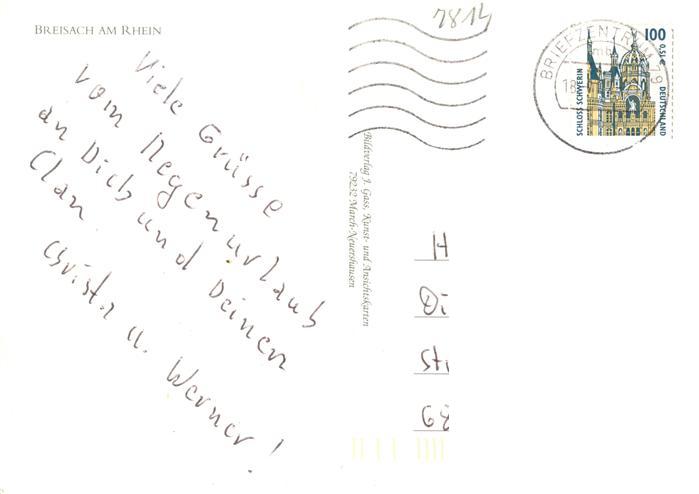 BREISACH AM RHEIN
Viele Grüsse
vom Regenurlaub
an Dich und Deinen
Clan
Christa u. Werner!
7814
Bildverlag J. Gass, Kunst- und Ansichtskarten
79232 March-Neuershausen
BRIEFZENTRUM 79
18
100
0,51 €
DEUTSCHLAND
SCHLOSS SCHWERIN
H
Di
Sti